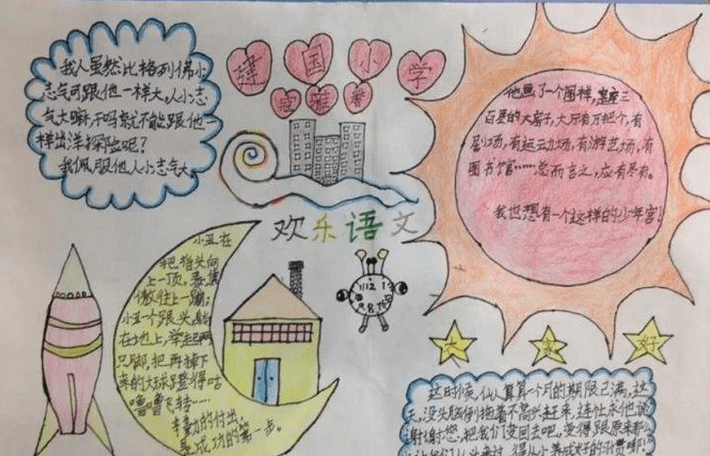 建国小学
我人虽然比格列佛小
志气可跟他一样大。人小志
气大嘛，不吗就不能跟他一
样出洋探险呢？
我佩服他人小志气大。
他画了一个图样，三
百层的大房子，大厅有万把个，有
剧场，有运动场，有游艺场，有
图书馆……总而言之，应有尽有。
我也想有一个这样的少年宫！
欢乐语文
小丑在
把指头向
上一顶，
傲往上一蹦；
小丑一个跟头
在地上，举起两
只脚，把再掉下
来的大球蹬得咕
噜噜飞转……
辛勤的付出，
是成功的第一步。
11 12 1
这时候，仙人算算一个月的期限已满，这
天，没头脑倒拖着不高兴走来，连忙求他说
谢谢您，把我们变回去吧，变得跟原来那么